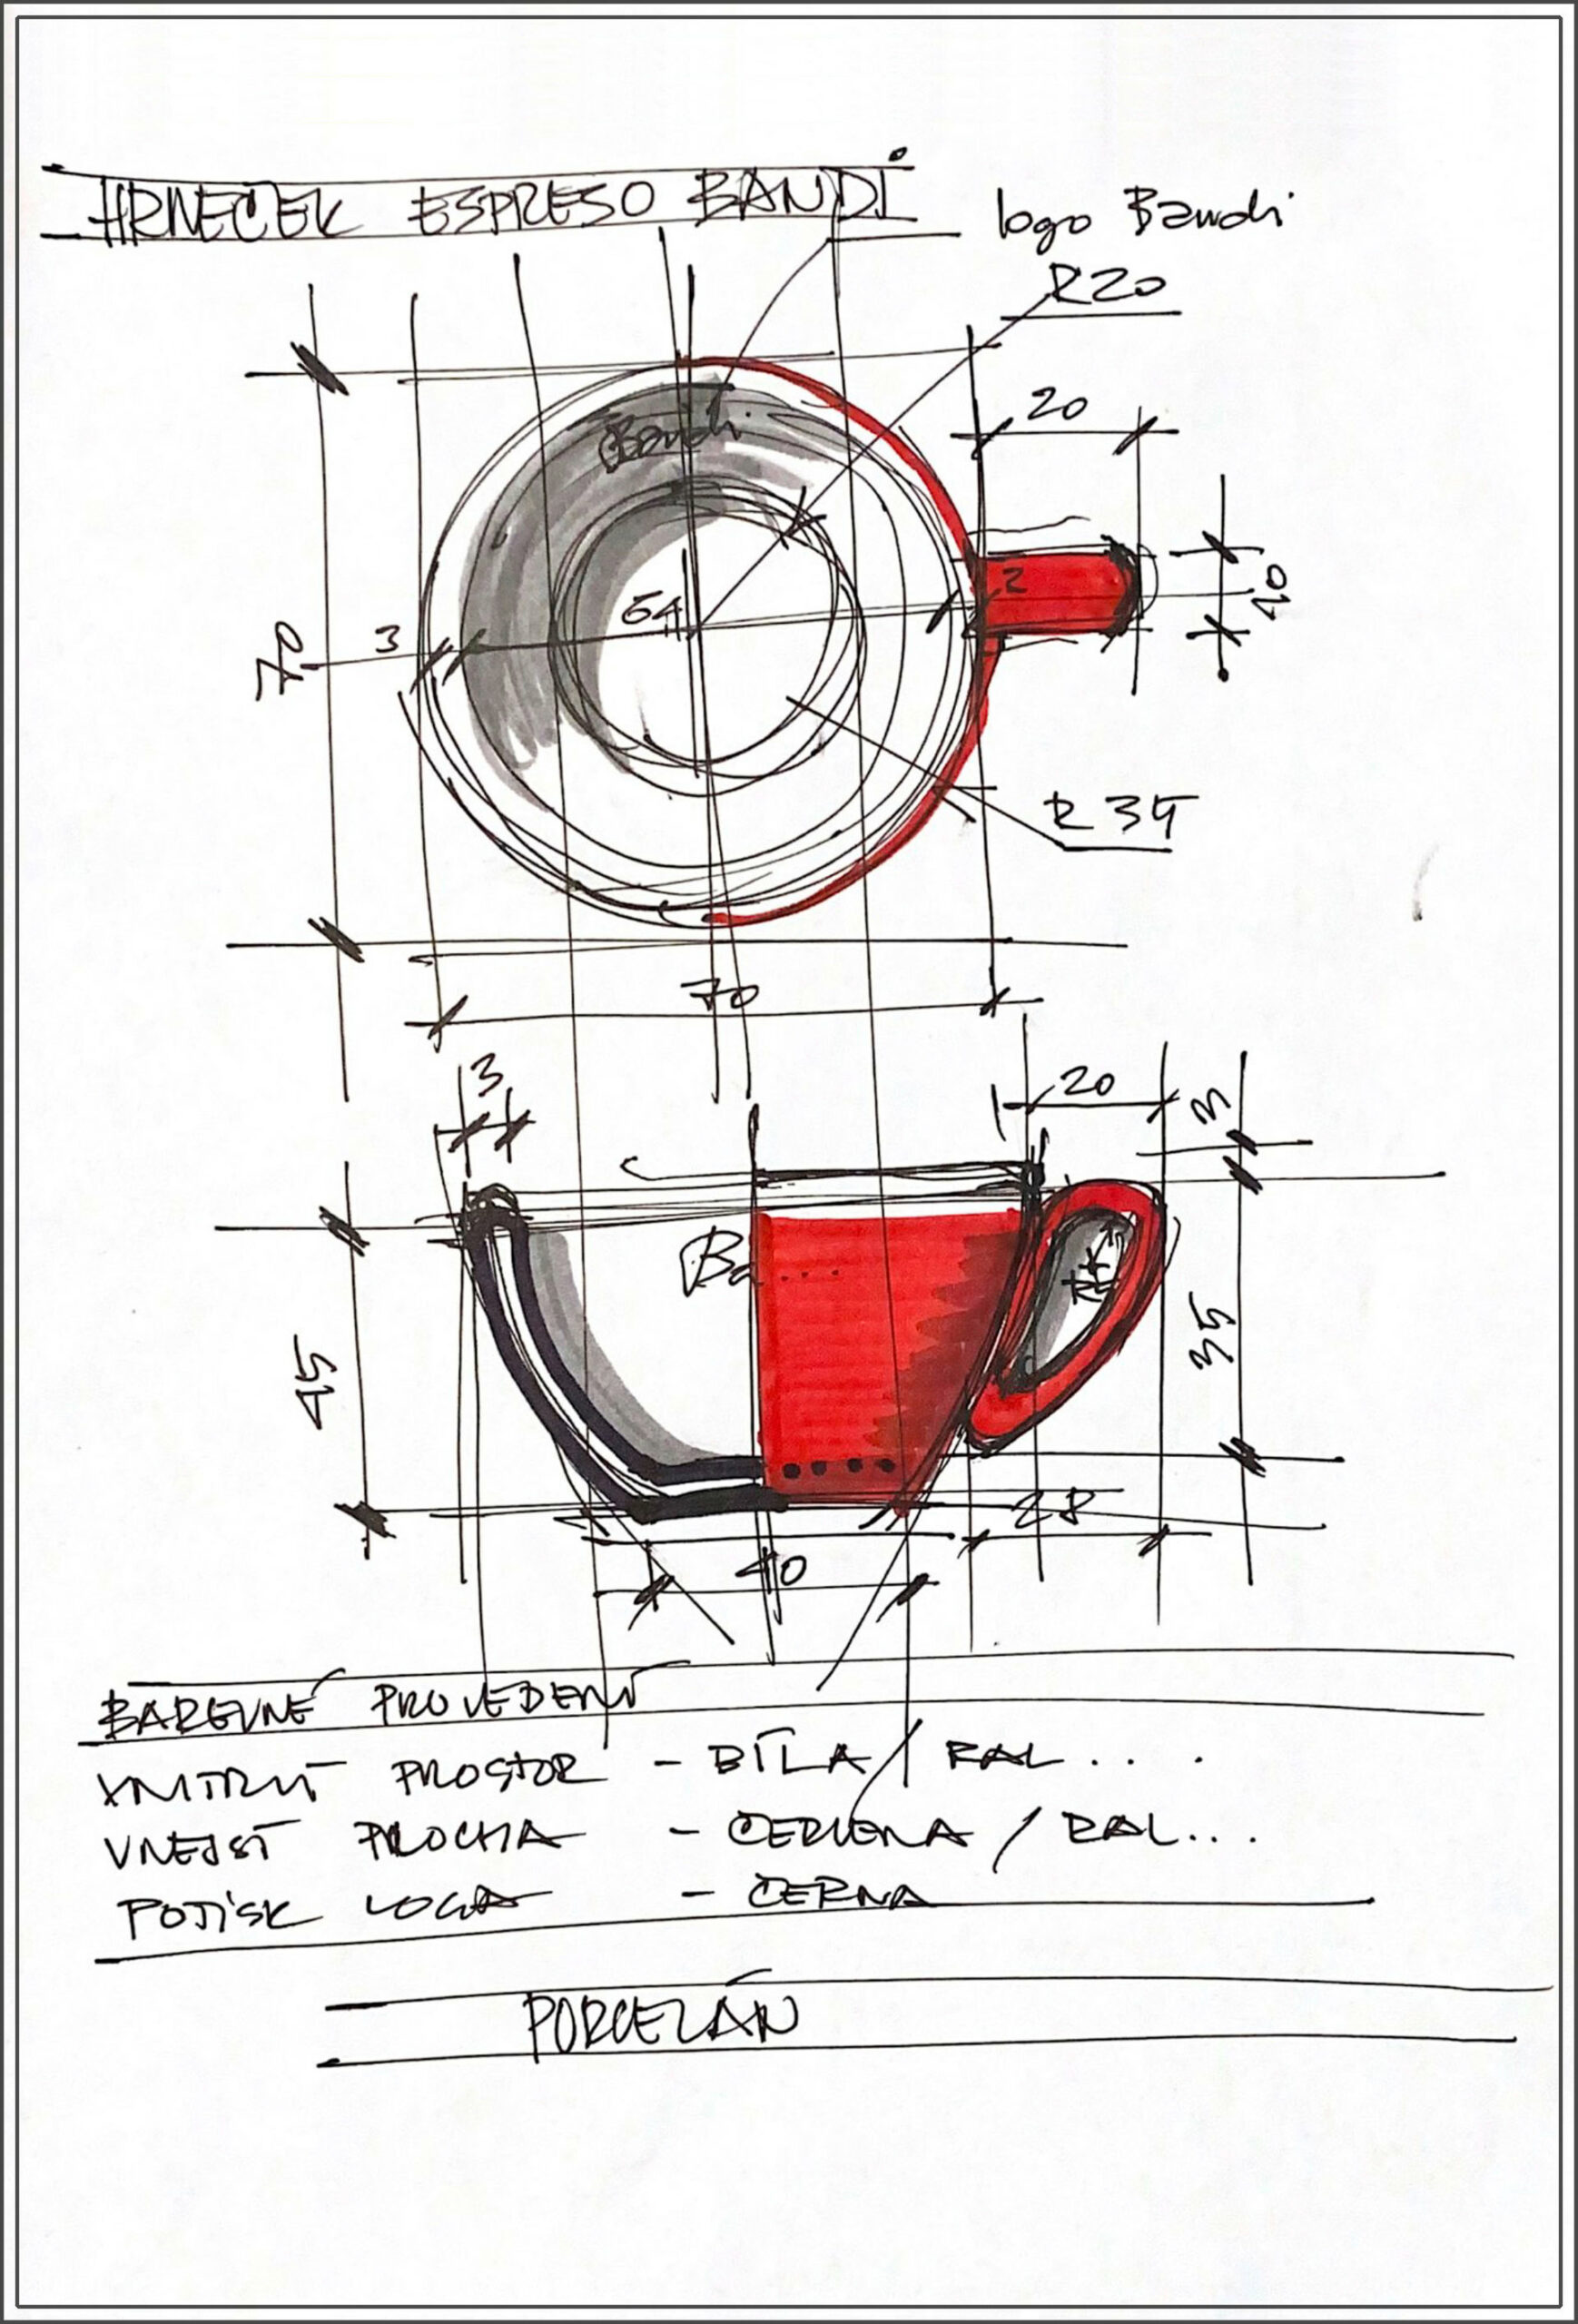 HRNEČEK ESPRESO BANDI
logo Bandi
R20
20
Bandi
10
2
64
3
70
R 35
70
3
20
3
Ba....
45
35
28
40
BAREVNÉ PROVEDENÍ
VNITRNÍ PROSTOR - BÍLA / RAL...
VNEJŠÍ PLOCHA - ČERVENA / RAL...
POTISK LOGA - ČERNA
PORCELÁN